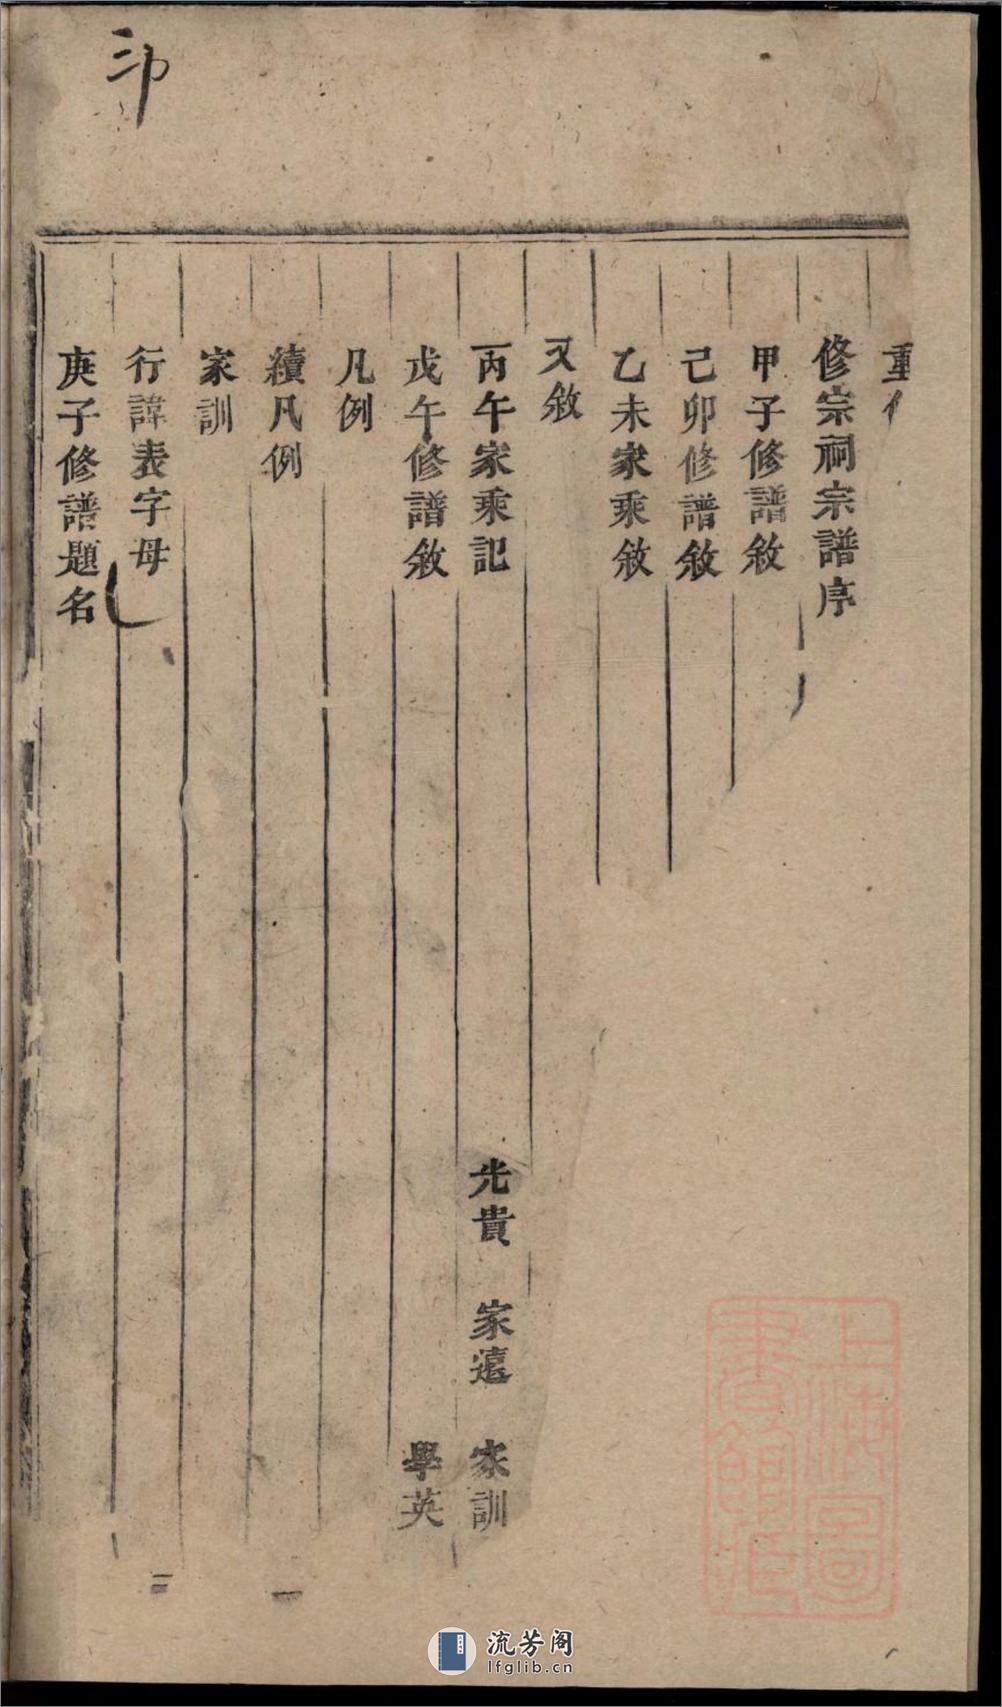 重修
修宗祠宗譜序
甲子修譜敘
己卯修譜敘
乙未家乘敘
又敘
丙午家乘記 光貴 家遠 家訓
戊午修譜敘 學英
凡例
續凡例
家訓
行諱表字母
庚子修譜題名
一
二
上海圖
書館藏
流芳阁
lfglib.cn